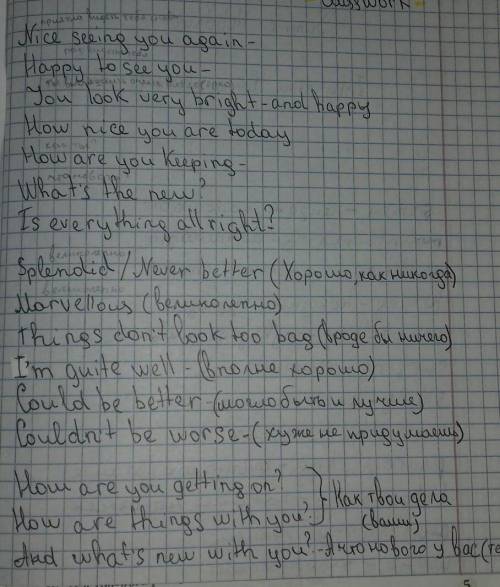 Classwork
приятно видеть тебя снова
Nice seeing you again -
Happy to see you -
You look very bright - and happy
How nice you are today
How are you keeping -
What's the new?
Is everything all right?
великолепно
Splendid / Never better (Хорошо, как никогда)
Marvellous (великолепно)
Things don't look too bag (вроде бы ничего)
I'm quite well - (вполне хорошо)
Could be better - (могло быть и лучше)
Couldn't be worse - (хуже не придумаешь)
How are you getting on?
How are things with you? } Как твои дела
(ваши)
And what's new with you? - А что нового у вас (те
5